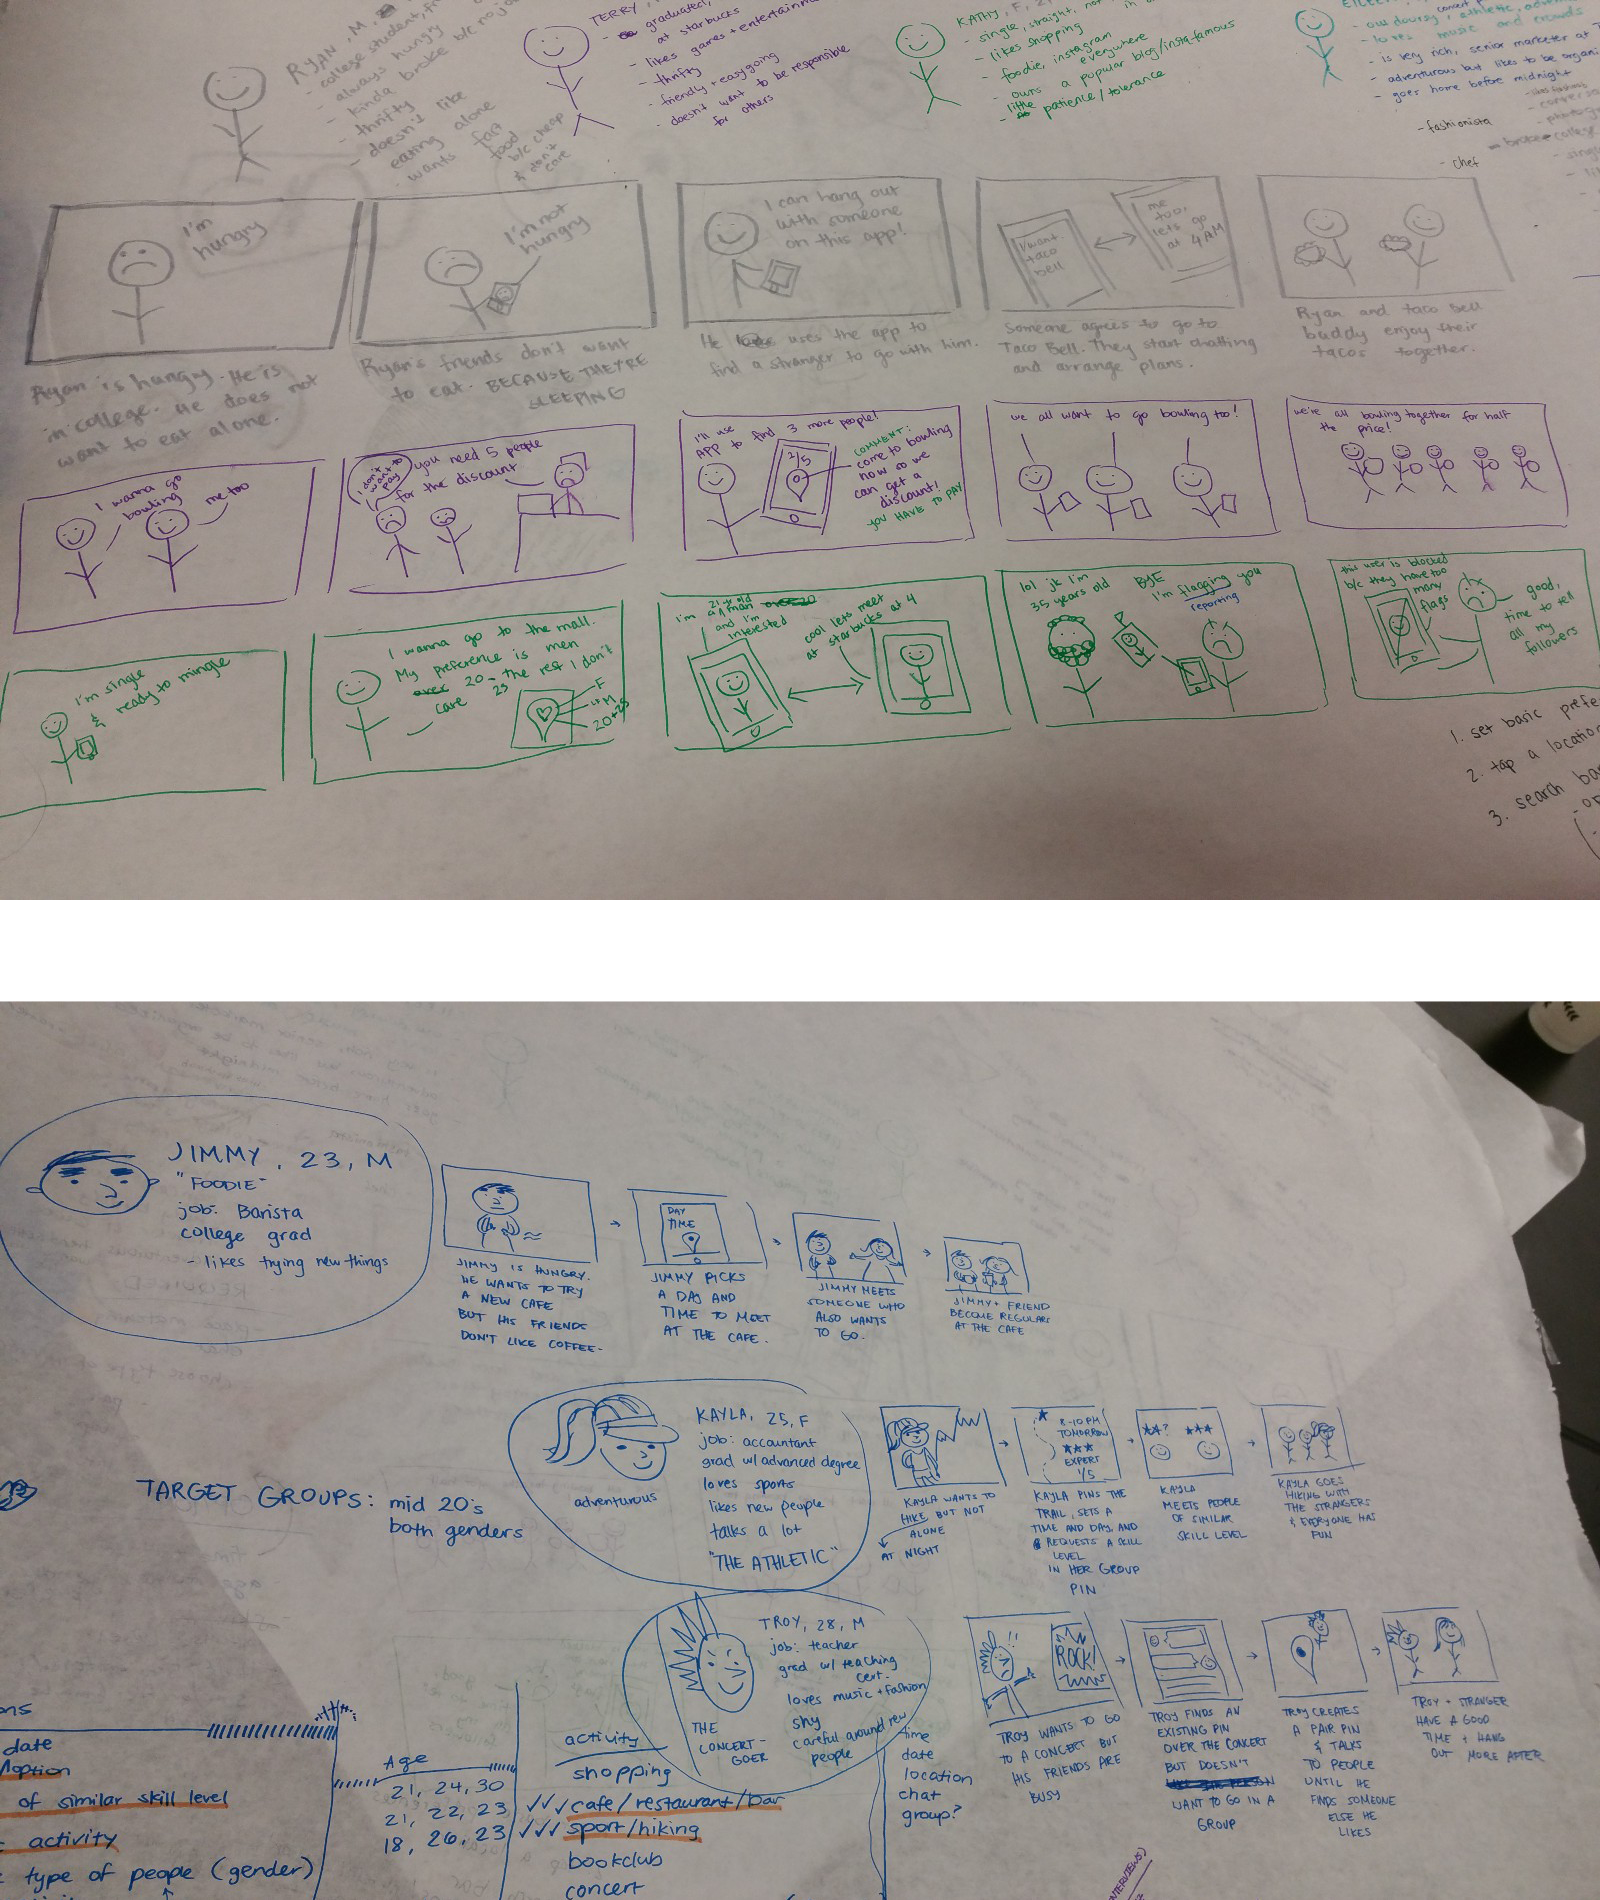 RYAN, M,
- college student,
always hungry
- kinda broke b/c no
- thrifty
- doesn't like
eating alone
- wants fast
food
b/c cheap
& don't
care
TERRY,
- graduated,
at starbucks
- likes games + entertainm
- thrifty
- friendly + easygoing
- doesn't want to be responsible
for others
KATHY, F,
- single, straight, not
- likes shopping
- foodie, instagram
everywhere
- owns a popular blog/insta-famous
- little patience/tolerance
concert
- outdoorsy, athletic,
- loves music and crowds
- is very rich, senior marketer at
- adventurous but likes to be organi
- goes home before midnight
- fashionista
- chef
I'm
hungry
Ryan is hungry. He is
in college. He does not
want to eat alone.
I'm not
hungry
Ryan's friends don't want
to eat. BECAUSE THEY'RE
SLEEPING
I can hang out
with someone
on this app!
He uses the app to
find a stranger to go with him.
I want
taco
bell
me
too,
lets go
at 4AM
Someone agrees to go to
Taco Bell. They start chatting
and arrange plans.
Ryan and taco bell
buddy enjoy their
tacos together.
I wanna go
bowling
me too
I don't
want to
pay
you need 5 people
for the discount
I'll use
APP to find 3 more people!
2/5
COMMENT:
come to bowling
now so we
can get a
discount!
YOU HAVE TO PAY
we all want to go bowling too!
we're all bowling together for half
the price!
I'm single
&
ready to mingle
I wanna go to the mall.
My preference is men
over 20-25 the rest I don't
care
F
M
20-25
I'm a 21 yr old man
and I'm
interested
cool lets meet
at starbucks at 4
lol jk I'm
35 years old
BYE
I'm flagging you
reporting
this user is blocked
b/c they have too
many
flags
good,
time to tell
all my
followers
1. set basic prefe
2. tap a location
3. search ba
JIMMY, 23, M
"FOODIE"
job: Barista
college grad
- likes trying new things
JIMMY IS HUNGRY.
HE WANTS TO TRY
A NEW CAFE
BUT HIS FRIENDS
DON'T LIKE COFFEE.
DAY
TIME
JIMMY PICKS
A DAY AND
TIME TO MEET
AT THE CAFE.
JIMMY MEETS
SOMEONE WHO
ALSO WANTS
TO GO.
JIMMY + FRIEND
BECOME REGULARS
AT THE CAFE
TARGET GROUPS: mid 20's
both genders
adventurous
KAYLA, 25, F
job: accountant
grad w/ advanced degree
loves sports
likes new people
talks a lot
"THE ATHLETIC"
KAYLA WANTS TO
HIKE BUT NOT
ALONE
AT NIGHT
8-10PM
TOMORROW
★★★
EXPERT
1/5
KAYLA PINS THE
TRAIL, SETS A
TIME AND DAY, AND
REQUESTS A SKILL
LEVEL
IN HER GROUP
PIN
★★? ★★★
KAYLA
MEETS PEOPLE
OF SIMILAR
SKILL LEVEL
KAYLA GOES
HIKING WITH
THE STRANGERS
& EVERYONE HAS
FUN
THE
CONCERT-
GOER
TROY, 28, M
job: teacher
grad w/ teaching
cert.
loves music + fashion
shy
careful around new
people
!!
ROCK!
TROY WANTS TO GO
TO A CONCERT BUT
HIS FRIENDS ARE
BUSY
TROY FINDS AN
EXISTING PIN
OVER THE CONCERT
BUT DOESN'T
WANT TO GO IN A
GROUP
TROY CREATES
A PAIR PIN
& TALKS
TO PEOPLE
UNTIL HE
FINDS SOMEONE
ELSE HE
LIKES
TROY + STRANGER
HAVE A GOOD
TIME + HANG
OUT MORE AFTER
ons
date
option
of similar skill level
activity
type of people (gender)
Age
21, 24, 30
21, 22, 23
18, 26, 23
activity
shopping
✓✓✓ cafe/restaurant/bar
✓✓✓ sport/hiking
bookclub
concert
time
date
location
chat
group?